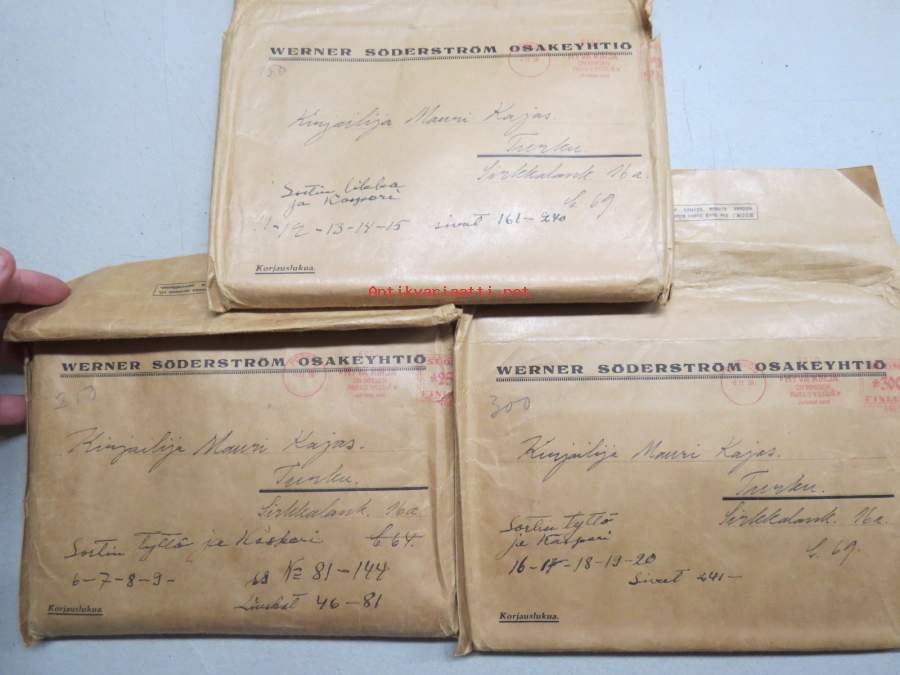 WERNER SÖDERSTRÖM OSAKEYHTIÖ
150
HYVÄ KIRJA
Kirjailija Mauri Kajas
Turku.
Sirkkalank. 16a.
C. 69
Sortin
ja Kaspari
12-13-14-15 sivut 161-240
Korjauslukua.
Antikvariaatti.net
WERNER SÖDERSTRÖM OSAKEYHTIÖ
250
HYVÄ KIRJA
Kirjailija Mauri Kajas.
Turku.
Sirkkalank. 16a.
Sortin tyttö ja Kaspari
6-7-8-9-
69 № 81-144
Liuskat 46-81
Korjauslukua.
WERNER SÖDERSTRÖM OSAKEYHTIÖ
300
HYVÄ KIRJA
Kirjailija Mauri Kajas.
Turku.
Sirkkalank. 16a.
C. 69.
Sortin tyttö
ja Kaspari
16-17-18-19-20
Sivut 241-
Korjauslukua.